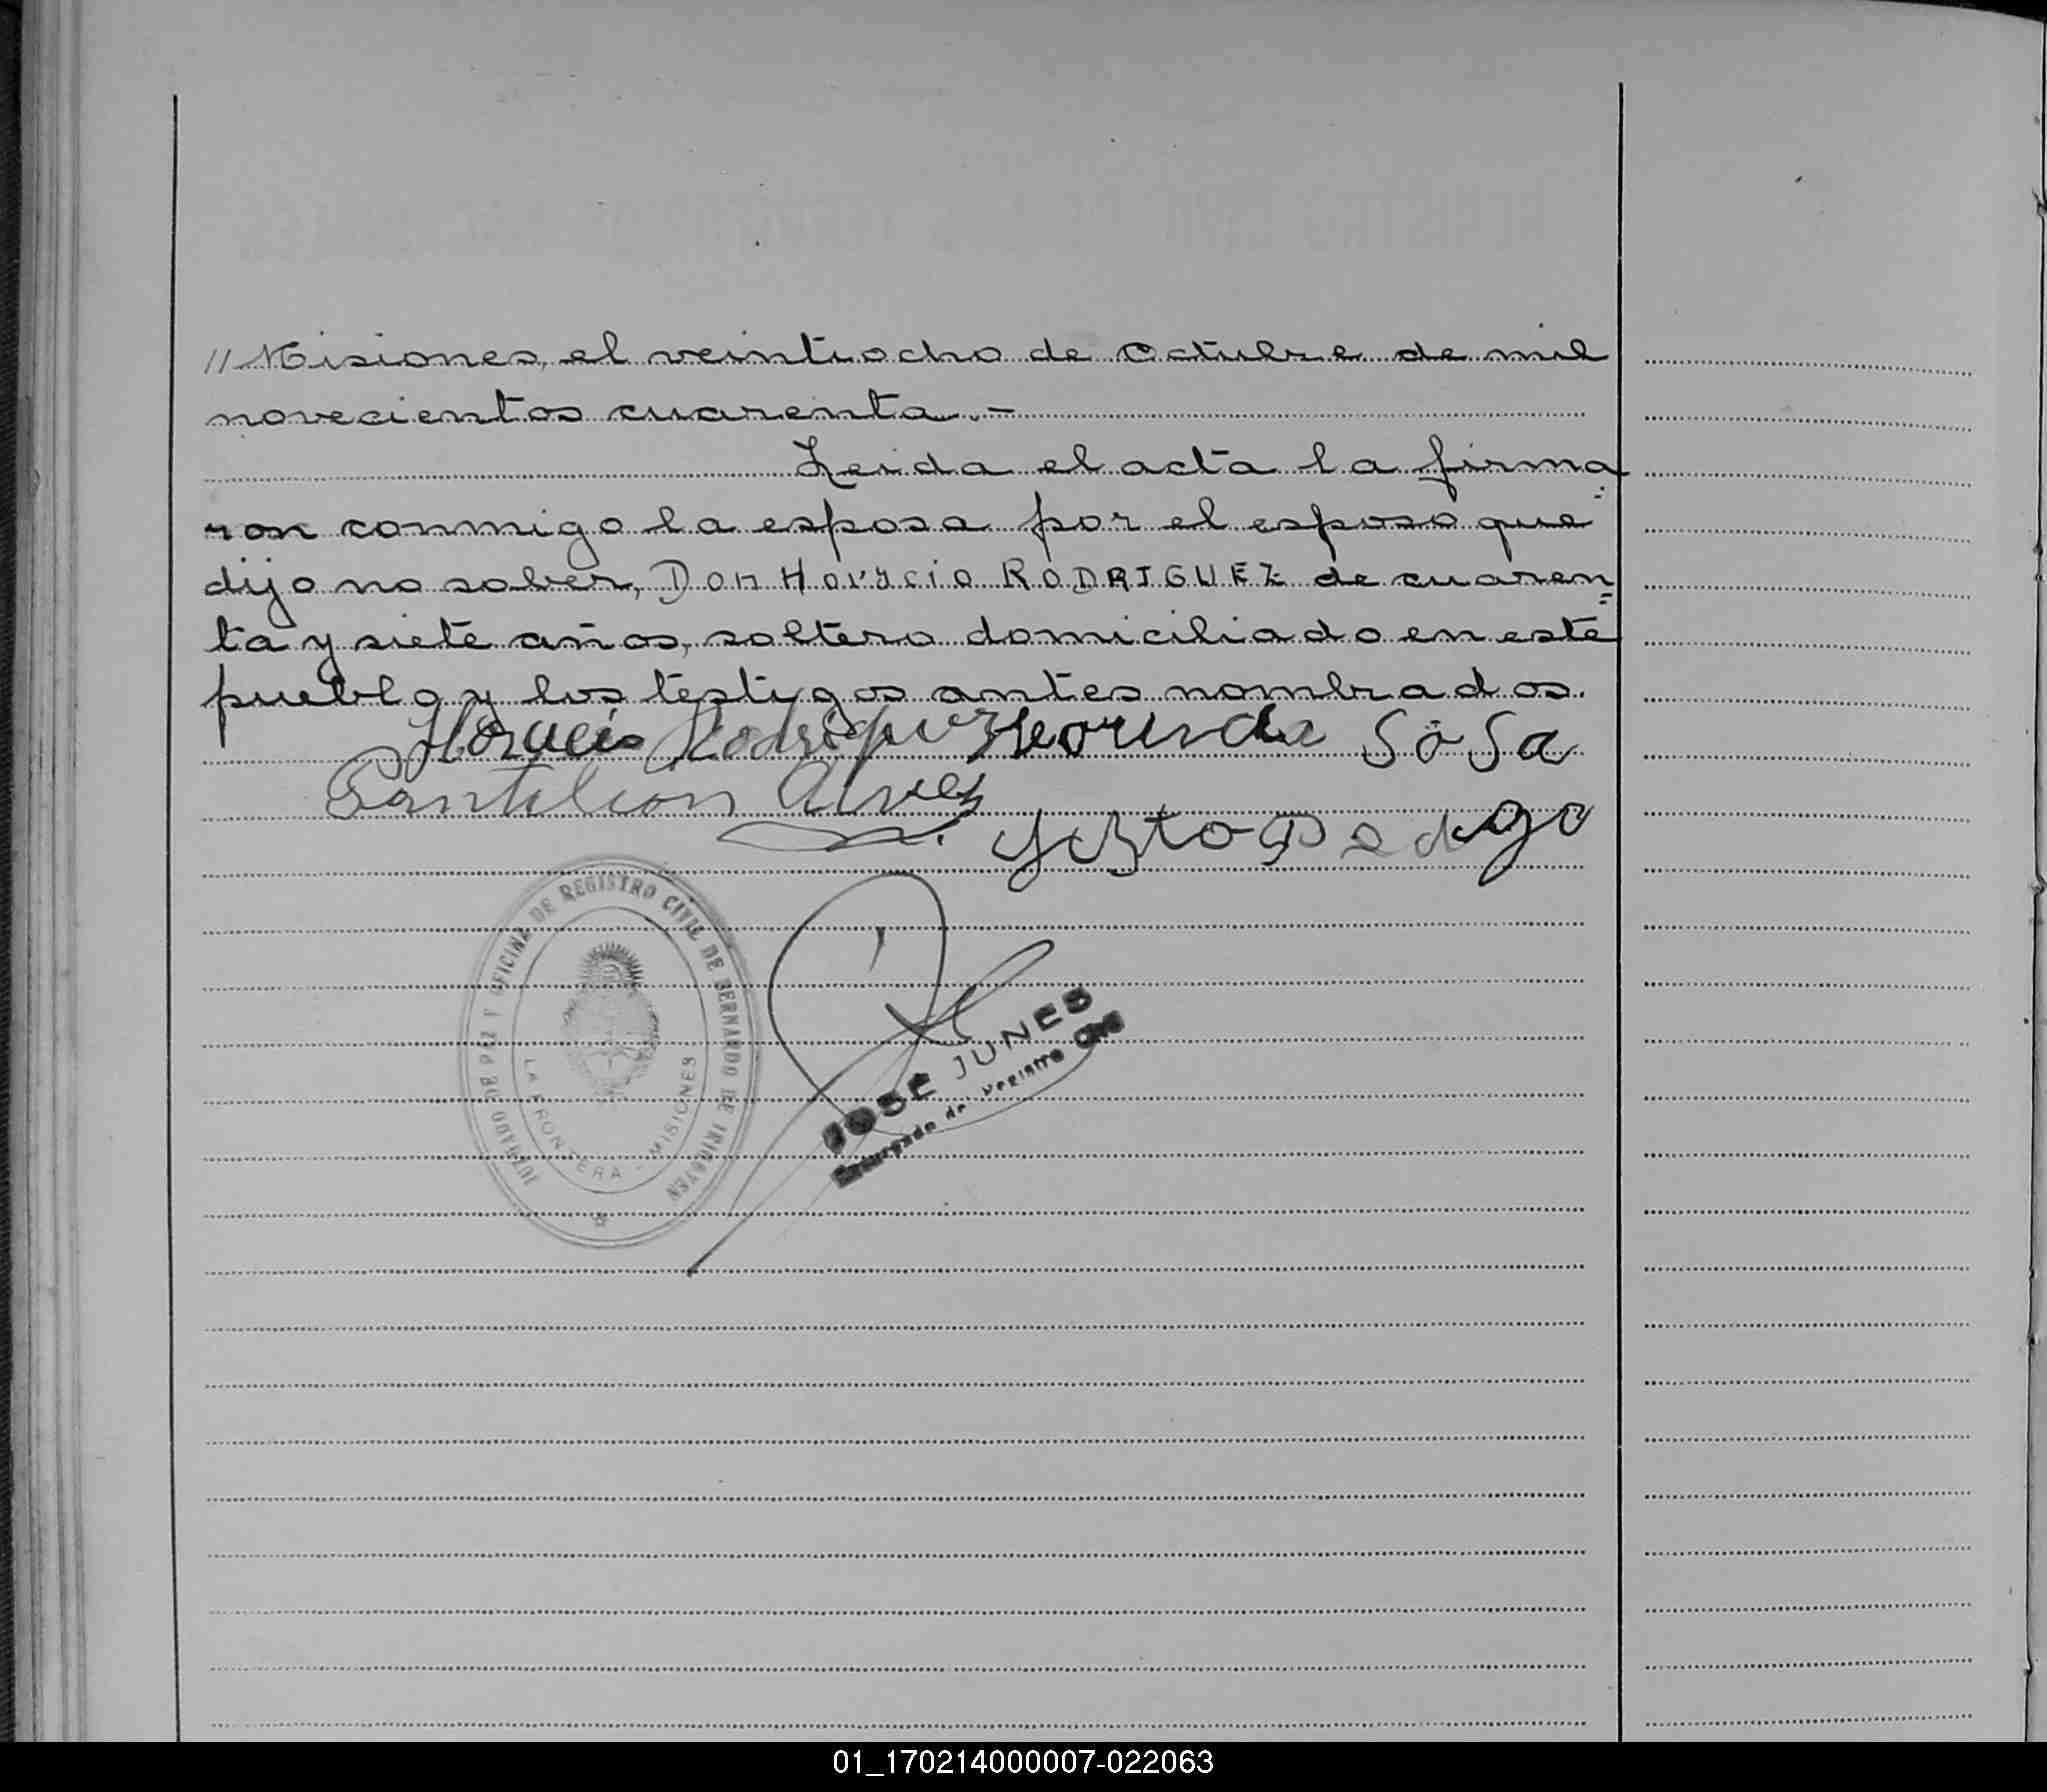 // Misiones, el veintiocho de Octubre de mil
novecientos cuarenta.-
Leida el acta la firma=
ron conmigo la esposa por el esposo que
dijo no saber, Don Horacio RODRIGUEZ de cuaren=
ta y siete años, soltero domiciliado en este
pueblo y los testigos antes nombrados.
Horacio Rodriguez Sosa
Pantaleon Alves
JUZGADO DE PAZ Y OFICINA DE REGISTRO CIVIL DE BERNARDO DE IRIGOYEN
LA FRONTERA - MISIONES
JOSÉ JUNES
Encargado del Registro Civil
01_170214000007-022063